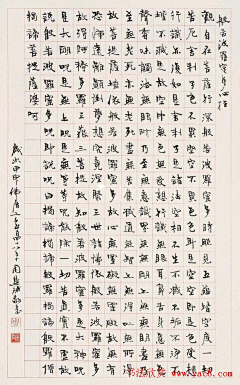 般若波羅蜜多心經
觀自在菩薩行深般若波羅蜜多時照見五蘊皆空度一切
苦厄舍利子色不異空空不異色色即是空空即是色受想
行識亦復如是舍利子是諸法空相不生不滅不垢不淨不
增不減是故空中無色無受想行識無眼耳鼻舌身意無色
聲香味觸法無眼界乃至無意識界無無明亦無無明盡乃
至無老死亦無老死盡無苦集滅道無智亦無得以無所得
故菩提薩埵依般若波羅蜜多故心無罣礙無罣礙故無有
恐怖遠離顛倒夢想究竟涅槃三世諸佛依般若波羅蜜多
故得阿耨多羅三藐三菩提故知般若波羅蜜多是大神咒
是大明咒是無上咒是無等等咒能除一切苦真實不虛故
說般若波羅蜜多咒即說咒曰揭諦揭諦般羅揭諦般羅僧
揭諦菩提薩婆呵
歲次甲申
书法欣赏
www.yac8.com